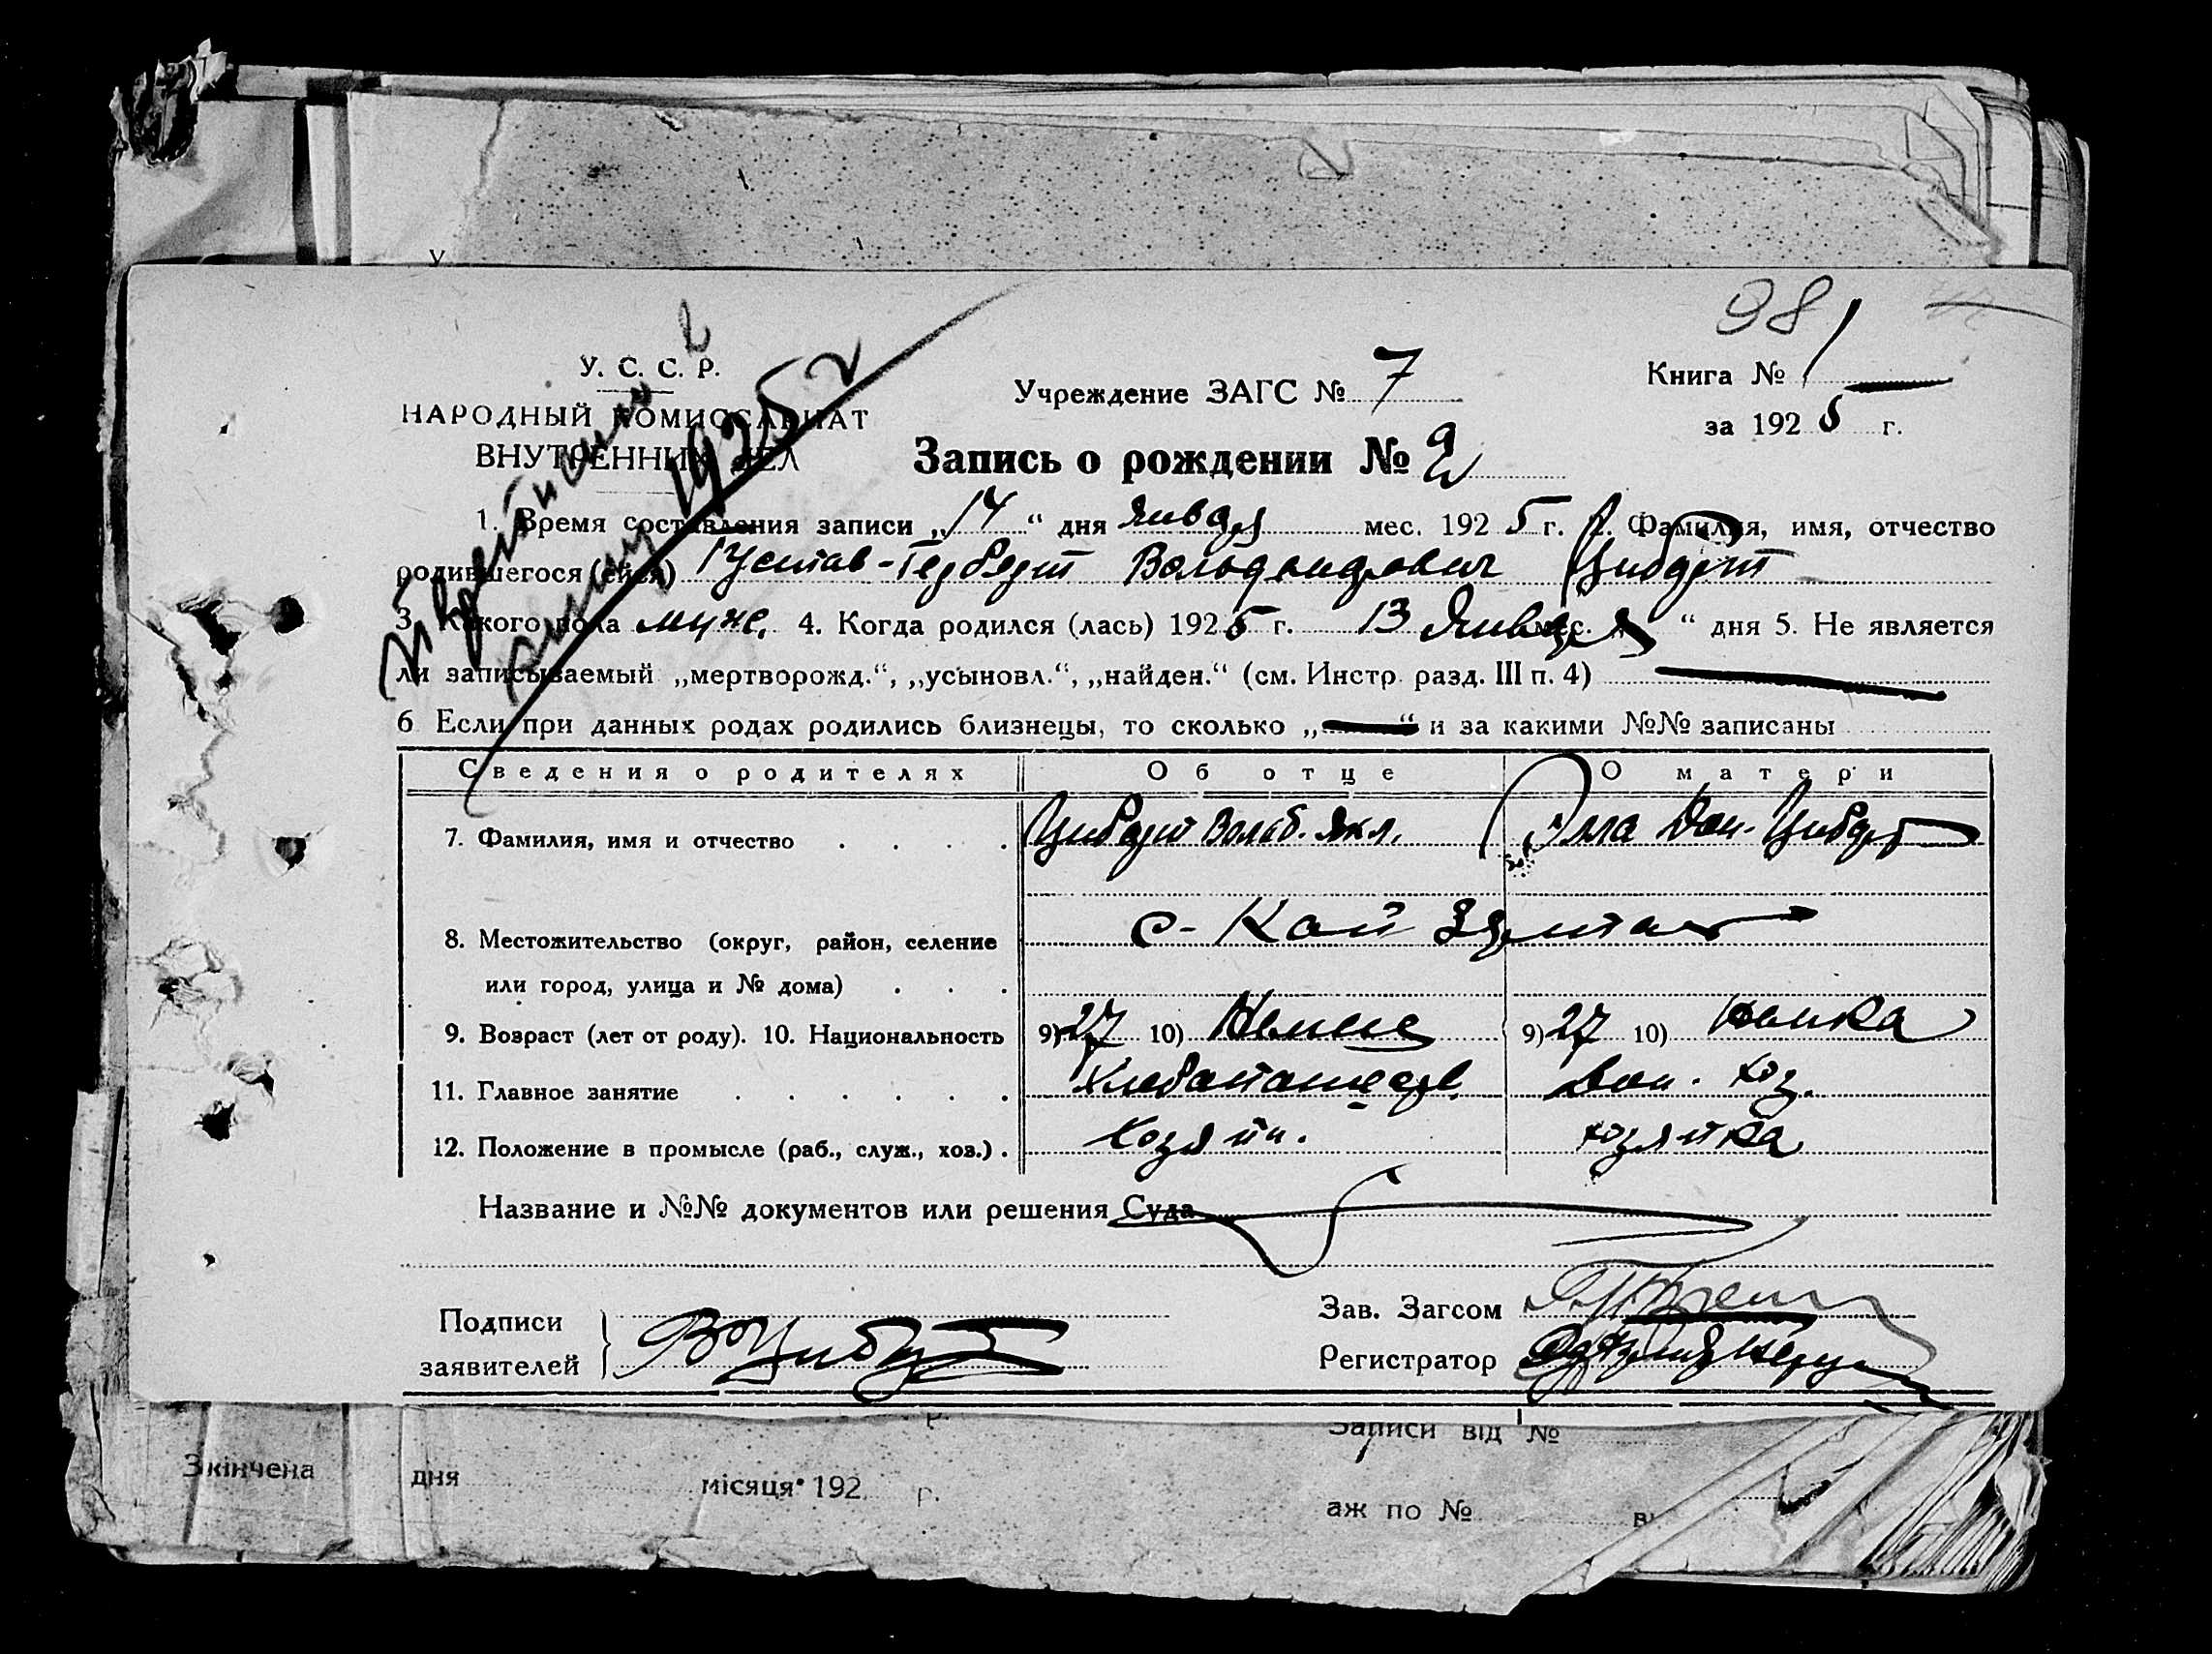 98
У. С. С. Р.
НАРОДНЫЙ КОМИССАРИАТ
ВНУТРЕННИХ ДЕЛ
1925
Учреждение ЗАГС № 7
Книга № 1
за 1925 г.
Запись о рождении № 2
1. Время составления записи „14“ дня января мес. 1925 г. 2. Фамилия, имя, отчество
родившегося (ейся) Густав-Герберт Вольдемарович Цибарт
3. Какого пола муж. 4. Когда родился (лась) 1925 г. 13 января мес. „ “ дня 5. Не является
ли записываемый „мертворожд.“, „усыновл.“, „найден.“ (см. Инстр. разд. III п. 4)
6 Если при данных родах родились близнецы, то сколько „ “ и за какими №№ записаны
Сведения о родителях Об отце О матери
7. Фамилия, имя и отчество Цибарт Элла Цибарт
8. Местожительство (округ, район, селение с-
или город, улица и № дома)
9. Возраст (лет от роду). 10. Национальность 9) 27 10) Немец 9) 27 10) Немка
11. Главное занятие Хлебопашец Дом. хоз.
12. Положение в промысле (раб., служ., хоз.) Хозяин. хозяйка
Название и №№ документов или решения Суда
Подписи
заявителей
Зав. Загсом
Регистратор
Записи від №
Зкінчена дня місяця 192 р.
аж по №